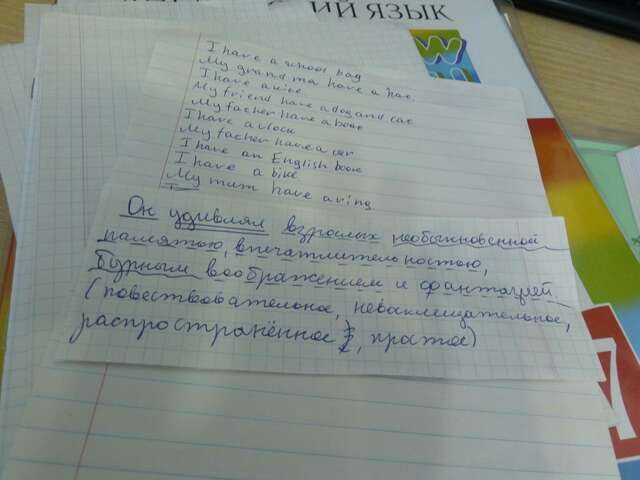 ИЙ ЯЗЫК
I have a school bag
My grand ma have a hat.
I have a
My friend have a dog and cat
My father have a book
I have a clock
My father have a car
I have an English book
I have a bike
My mum have a ring
Он удивлял взрослых необыкновенной
памятью, впечатлительностью,
бурным воображением и фантазией
(повествовательное, невосклицательное,
распространённое, простое)